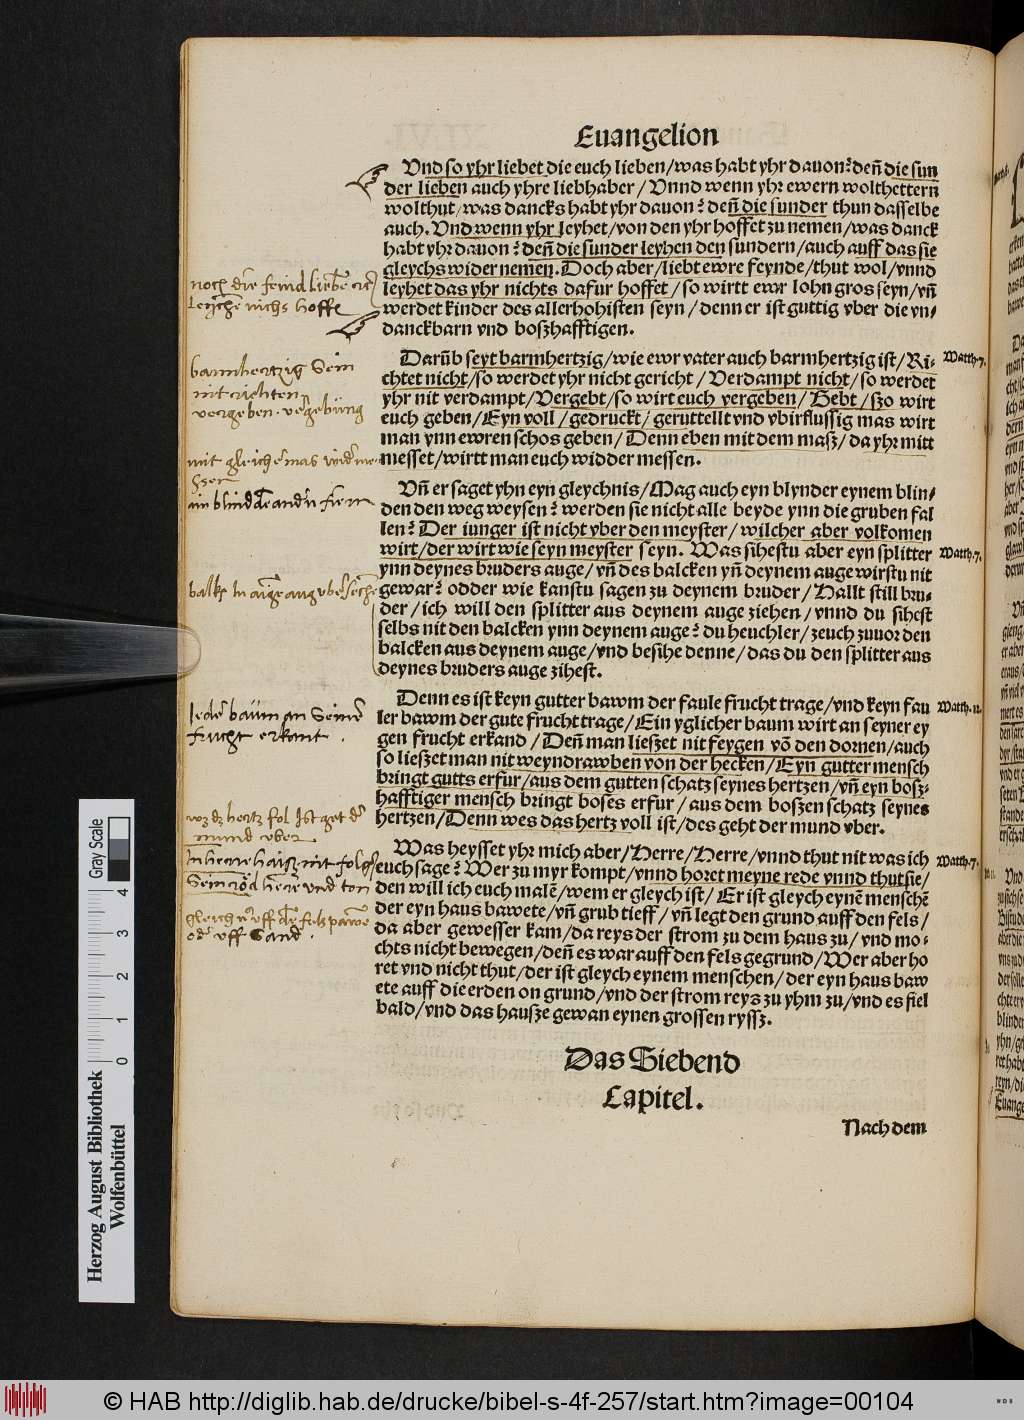 Euangelion
Vnd so yhr liebet die euch lieben/was habt yhr dauon? deñ die sun
der lieben auch yhre liebhaber/ Vnnd wenn yhr ewern wolthettern
wolthut/was dancks habt yhr dauon? deñ die sunder thun dasselbe
auch. Vnd wenn yhr leyhet/von den yhr hoffet zu nemen/was danck
habt yhr dauon? deñ die sunder leyhen den sundern/auch auff das sie
gleychs wider nemen. Doch aber/liebt ewre feynde/thut wol/vnnd
leyhet das yhr nichts dafur hoffet/so wirtt ewr lohn gros seyn/vñ
werdet kinder des allerhohisten seyn/denn er ist guttig vber die vn-
danckbarn vnd boßhafftigen.
noch die feind liebe
nichs hoffe
Darũb seyt barmhertzig/wie ewr vater auch barmhertzig ist/Ri-
chtet nicht/so werdet yhr nicht gericht/ Verdampt nicht/so werdet
yhr nit verdampt/Vergebt/so wirt euch vergeben/ Gebt/szo wirt
euch geben/Eyn voll/gedruckt/geruttellt vnd vbirflussig mas wirt
man ynn ewren schos geben/ Denn eben mit dem masz/da yhr mitt
messet/wirtt man euch widder messen.
Matth.7.
barmhertzig Sein
nit richten
vergeben
mit gleicher mas
Vñ er saget yhn eyn gleychnis/Mag auch eyn blynder eynem blin-
den den weg weysen? werden sie nicht alle beyde ynn die gruben fal
len? Der iunger ist nicht vber den meyster/wilcher aber volkomen
wirt/der wirt wie seyn meyster seyn. Was sihestu aber eyn splitter
ynn deynes bruders auge/vñ des balcken yñ deynem auge wirstu nit
gewar? odder wie kanstu sagen zu deynem bruder/Hallt still bru-
der/ich will den splitter aus deynem auge ziehen/vnnd du sihest
selbs nit den balcken ynn deynem auge? du heuchler/zeuch zuuor den
balcken aus deynem auge/vnd besihe denne/das du den splitter aus
deynes bruders auge zihest.
Matth.7.
Denn es ist keyn gutter bawm der faule frucht trage/vnd keyn fau
ler bawm der gute frucht trage/Ein yglicher baum wirt an seyner ey
gen frucht erkand/Deñ man lieszet nit feygen võ den dornen/auch
so lieszet man nit weyndrawben von der hecken/Eyn gutter mensch
bringt gutts erfur/aus dem gutten schatz seynes hertzen/vñ eyn bosz-
hafftiger mensch bringt boses erfur/aus dem boszen schatz seynes
hertzen/Denn wes das hertz voll ist/des geht der mund vber.
Matth.12.
Jeder baum an Seiner
frucht erkant.
hertz fol Ist get der
mund vber
Was heysset yhr mich aber/Herre/Herre/vnnd thut nit was ich
euch sage? Wer zu myr kompt/vnnd horet meyne rede vnnd thut sie/
den will ich euch malẽ/wem er gleych ist/Er ist gleych eynẽ menschẽ
der eyn haus bawete/vñ grub tieff/vñ legt den grund auff den fels/
da aber gewesser kam/da reys der strom zu dem haus zu/vnd mo-
chts nicht bewegen/deñ es war auff den fels gegrund/Wer aber ho
ret vnd nicht thut/der ist gleych eynem menschen/der eyn haus baw
ete auff die erden on grund/vnd der strom reys zu yhm zu/vnd es fiel
bald/vnd das hausze gewan eynen grossen ryssz.
Matth.7.
Das Siebend
Capitel.
Nach dem
Herzog August Bibliothek
Wolfenbüttel
Gray Scale
0 1 2 3 4
© HAB http://diglib.hab.de/drucke/bibel-s-4f-257/start.htm?image=00104